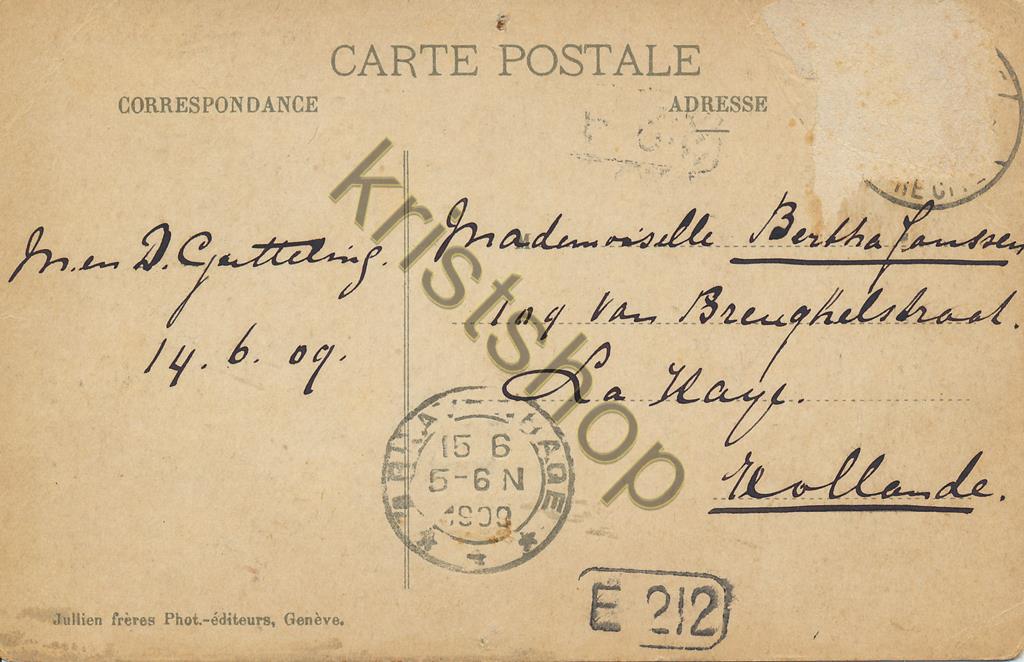 CARTE POSTALE
CORRESPONDANCE
ADRESSE
M. en D. Gutteling.
14. 6. 09.
Mademoiselle Bertha Janssen
109 Van Breughelstraat.
La Haye.
Hollande.
15 6
5-6 N
E 212
Jullien frères Phot.-éditeurs, Genève.
kristshop